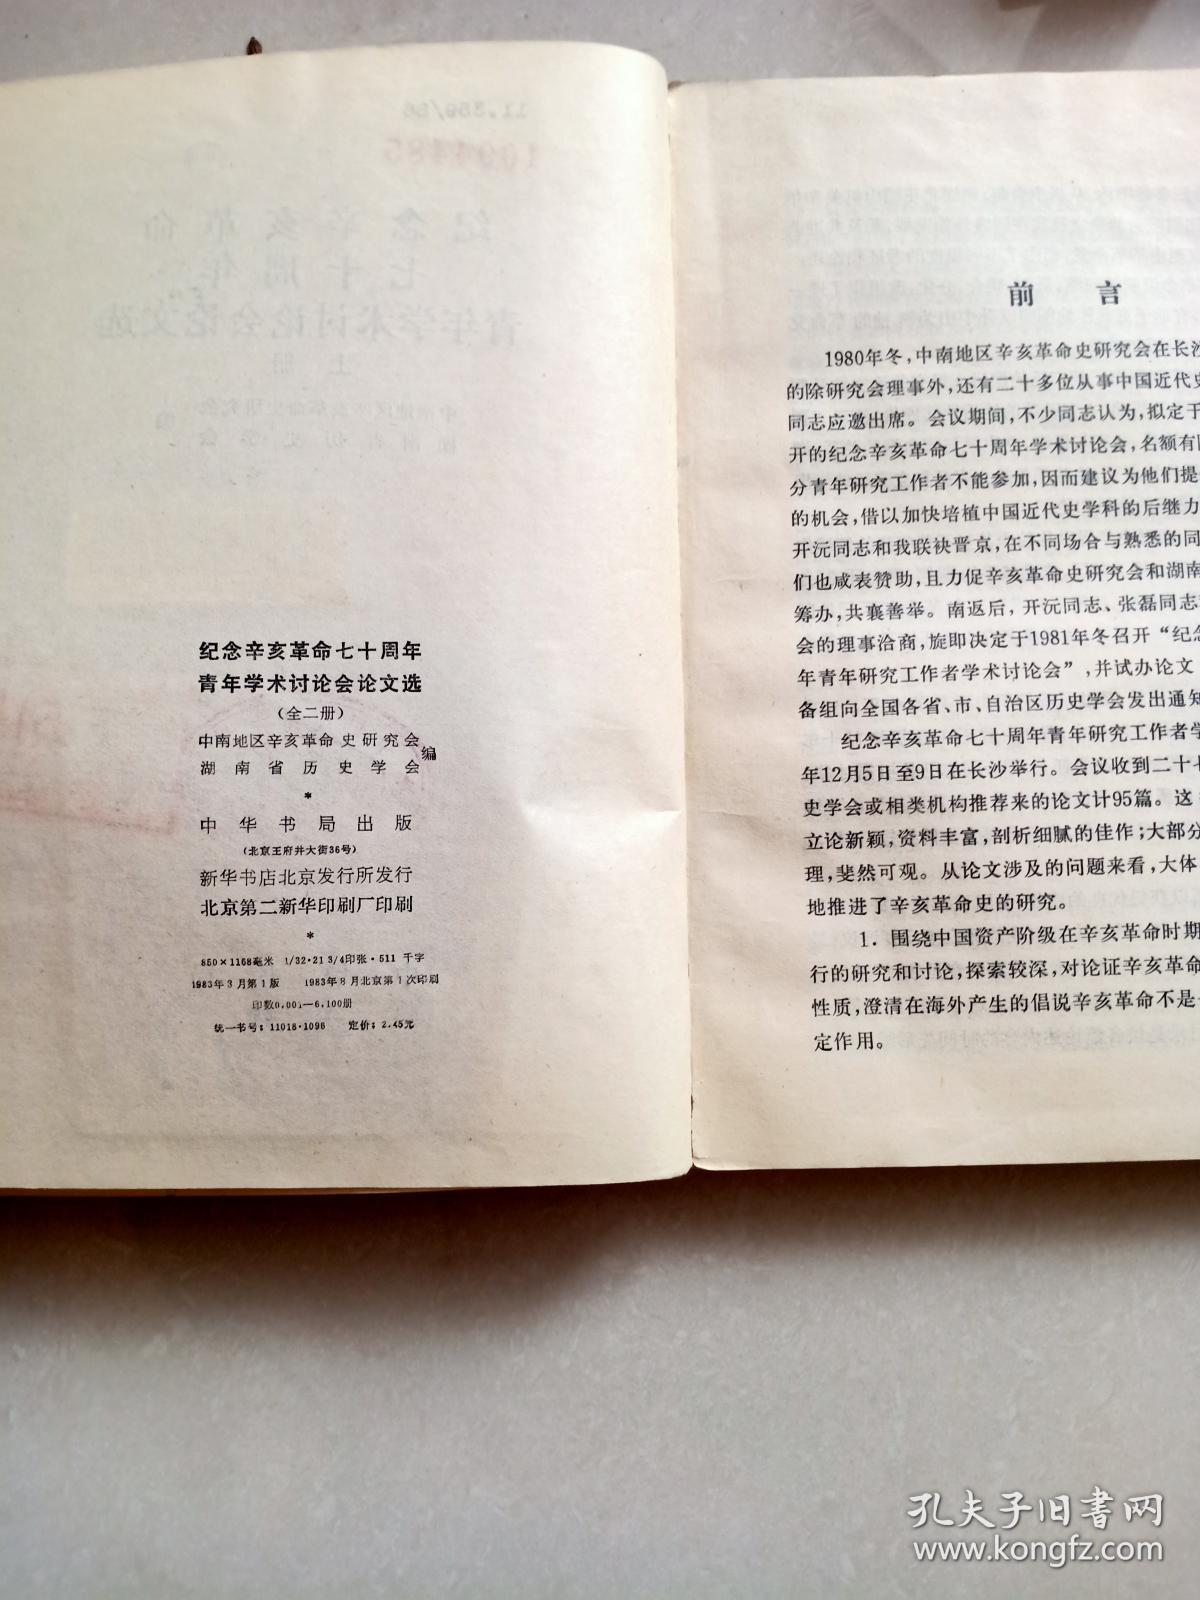 纪念辛亥革命七十周年
青年学术讨论会论文选
（全二册）
中南地区辛亥革命史研究会
湖南省历史学会
编
*
中华书局出版
（北京王府井大街36号）
新华书店北京发行所发行
北京第二新华印刷厂印刷
*
850×1168毫米 1/32·21 3/4印张·511 千字
1983年3月第1版 1983年8月北京第1次印刷
印数0,001—6,100册
统一书号：11018·1096 定价：2.45元
前言
1980年冬，中南地区辛亥革命史研究会在长沙
的除研究会理事外，还有二十多位从事中国近代史
同志应邀出席。会议期间，不少同志认为，拟定于
开的纪念辛亥革命七十周年学术讨论会，名额有
分青年研究工作者不能参加，因而建议为他们提
的机会，借以加快培植中国近代史学科的后继力
开沅同志和我联袂晋京，在不同场合与熟悉的同
们也咸表赞助，且力促辛亥革命史研究会和湖南
筹办，共襄善举。南返后，开沅同志、张磊同志
会的理事洽商，旋即决定于1981年冬召开“纪念
年青年研究工作者学术讨论会”，并试办论文
备组向全国各省、市、自治区历史学会发出通知
纪念辛亥革命七十周年青年研究工作者学
年12月5日至9日在长沙举行。会议收到二十七
史学会或相类机构推荐来的论文计95篇。这
立论新颖，资料丰富，剖析细腻的佳作；大部分
理，斐然可观。从论文涉及的问题来看，大体
地推进了辛亥革命史的研究。
1．围绕中国资产阶级在辛亥革命时期
行的研究和讨论，探索较深，对论证辛亥革命
性质，澄清在海外产生的倡说辛亥革命不是
定作用。
孔夫子旧书网
www.kongfz.com